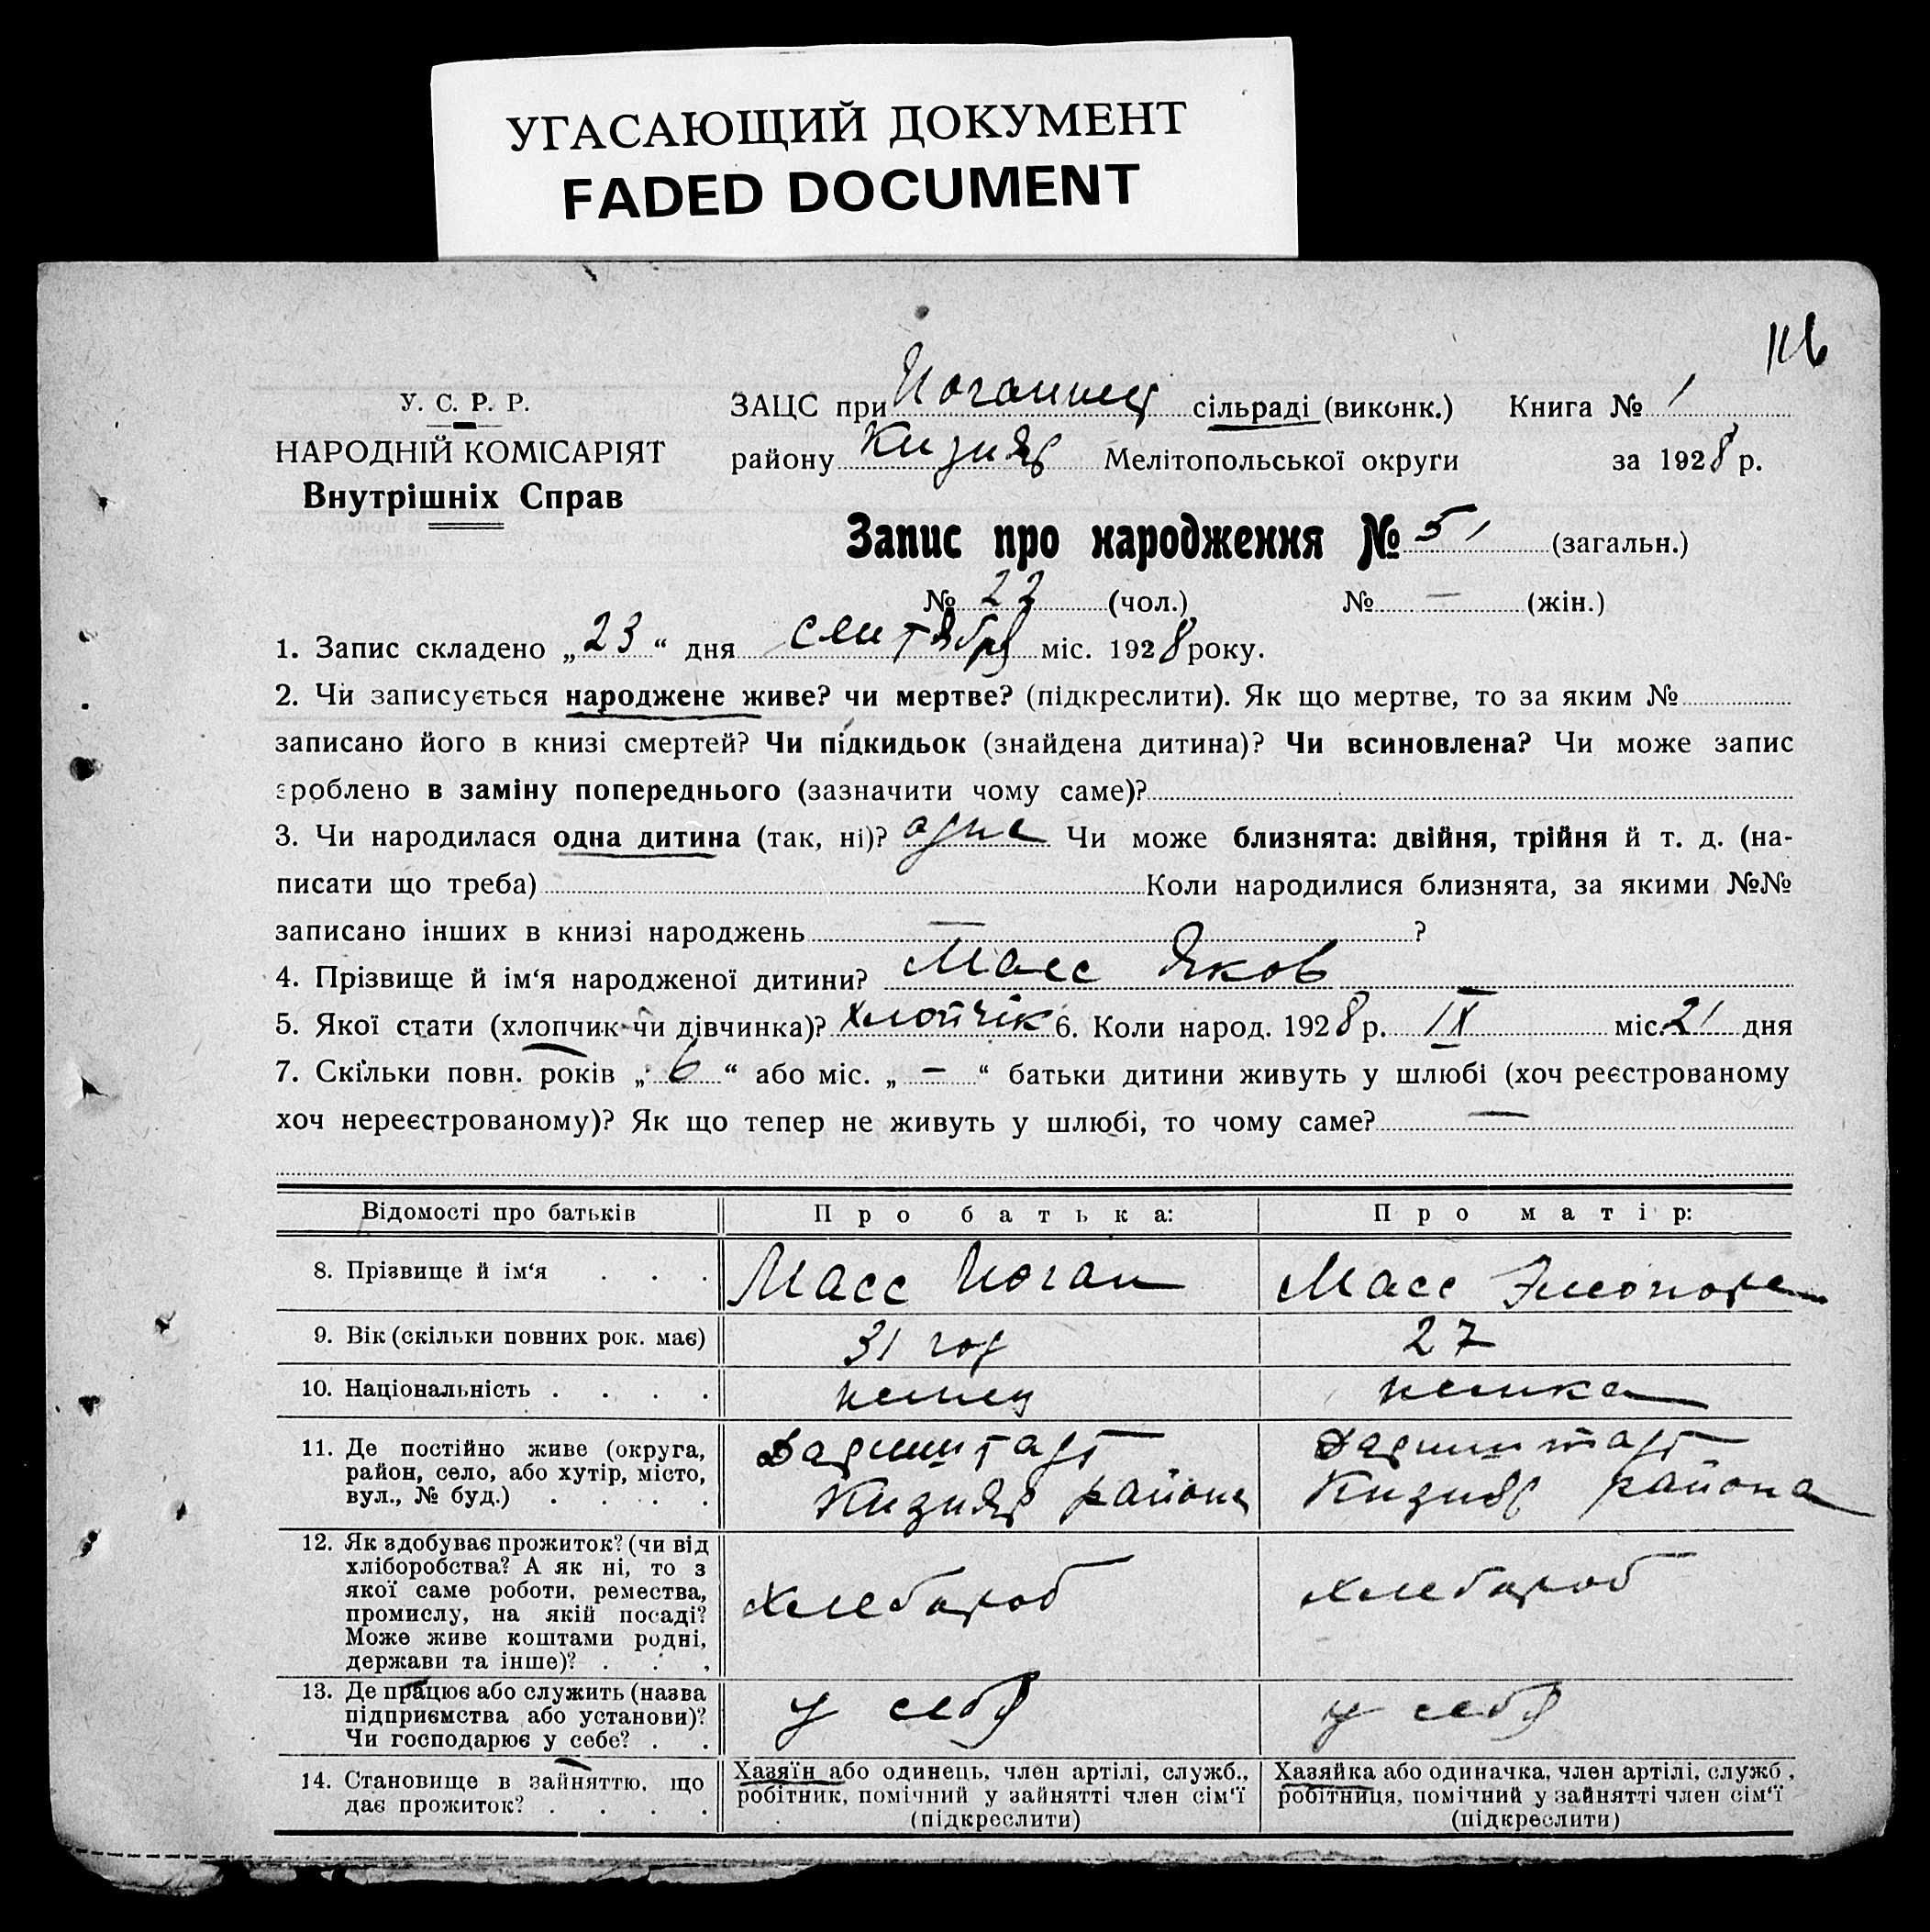 УГАСАЮЩИЙ ДОКУМЕНТ
FADED DOCUMENT
116
У. С. Р. Р.
НАРОДНІЙ КОМІСАРІЯТ
Внутрішніх Справ
ЗАЦС при сільраді (виконк.) Книга № 1
району Кизияр Мелітопольської округи за 1928 р.
Запис про народження № 51 (загальн.)
№ 22 (чол.) № — (жін.)
1. Запис складено „23“ дня сентября міс. 1928 року.
2. Чи записується народжене живе? чи мертве? (підкреслити). Як що мертве, то за яким №
записано його в книзі смертей? Чи підкидьок (знайдена дитина)? Чи всиновлена? Чи може запис
зроблено в заміну попереднього (зазначити чому саме)?
3. Чи народилася одна дитина (так, ні)? одна Чи може близнята: двійня, трійня й т. д. (на-
писати що треба) Коли народилися близнята, за якими №№
записано інших в книзі народжень — ?
4. Прізвище й ім‘я народженої дитини? Масс Яков
5. Якої стати (хлопчик чи дівчинка)? хлопчік 6. Коли народ. 1928 р. IX міс. 21 дня
7. Скільки повн. років „6“ або міс. „—“ батьки дитини живуть у шлюбі (хоч реєстрованому
хоч нереєстрованому)? Як що тепер не живуть у шлюбі, то чому саме? —
Відомості про батьків Про батька: Про матір:
8. Прізвище й ім‘я . . . Масс Иоган Масс Элеонора
9. Вік (скільки повних рок. має) 31 год 27
10. Національність . . . . немец немка
11. Де постійно живе (округа,
район, село, або хутір, місто,
вул., № буд.) . . . .
Дармштадт
Кизияр района
Дармштадт
Кизияр района
12. Як здобуває прожиток? (чи від
хліборобства? А як ні, то з
якої саме роботи, ремества,
промислу, на якій посаді?
Може живе коштами родні,
держави та інше)? . . .
хлебороб
хлебороб
13. Де працює або служить (назва
підприємства або установи)?
Чи господарює у себе? . .
у себя
у себя
14. Становище в зайняттю, що
дає прожиток? . . . .
Хазяїн або одинець, член артілі, служб.,
робітник, помічний у зайнятті член сім‘ї
(підкреслити)
Хазяйка або одиначка, член артілі, служб.,
робітниця, помічний у зайнятті член сім‘ї
(підкреслити)